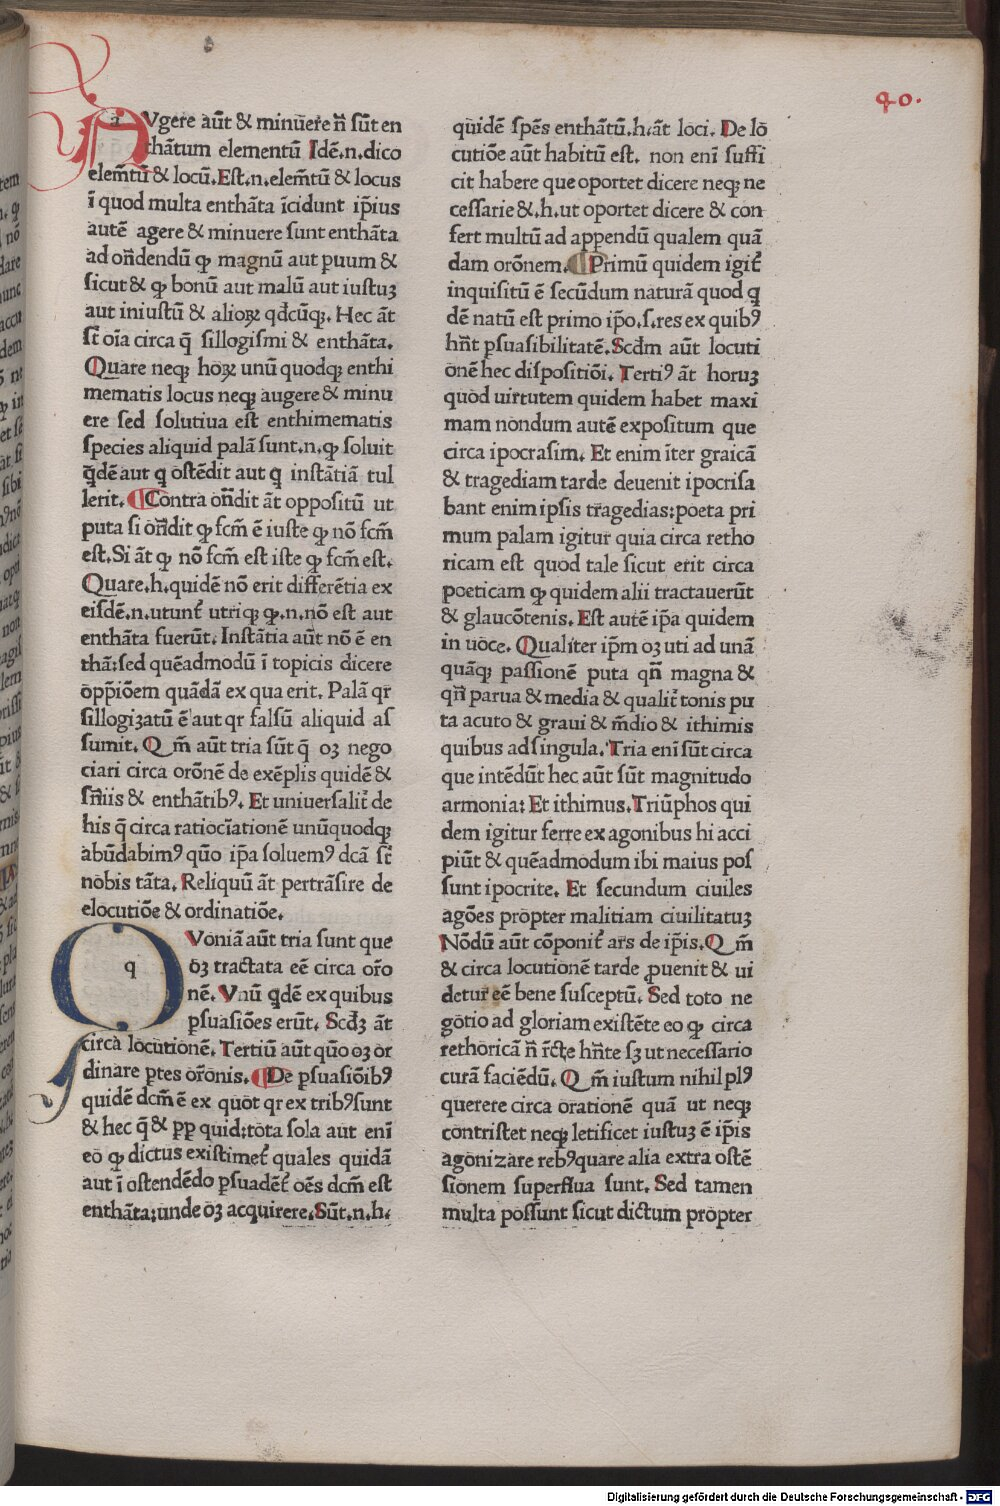 40.
AVgere aūt & minuere n̄ sūt en
thātum elementū Idē.n.dico
elem̄tū & locū.Est.n.elem̄tū & locus
ī quod multa enthāta īcidunt ip̄ius
autē agere & minuere sunt enthāta
ad on̄dendū ꝙ magnū aut puum &
sicut & ꝙ bonū aut malū aut iustuʒ
aut iniustū & alioꝝ qd̄cūqꝫ. Hec āt
st̄ oīa circa q̄ sillogismi & enthāta.
Quare neqꝫ hoꝝ unū quodqꝫ enthi
mematis locus neqꝫ augere & minu
ere sed solutiua est enthimematis
species aliquid palā sunt.n.ꝙ soluit
q̄dē aut q ostēdit aut q instātiā tul
lerit. Contra on̄dit āt oppositū ut
puta si on̄dit ꝙ fcm̄ ē iuste ꝙ nō fcm̄
est.Si āt ꝙ nō fcm̄ est iste ꝙ fcm̄ est.
Quare.h.quidē nō erit differētia ex
eisdē.n.utunt᷑ utriqꝫ ꝙ.n.nō est aut
enthāta fuerūt. Instātia aūt nō ē en
thā:sed quēadmodū ī topicis dicere
opp̄iōem quādā ex qua erit. Palā qr̄
sillogiʒatū ē aut qr falsū aliquid as
sumit. Qm̄ aūt tria sūt q̄ oʒ nego
ciari circa orōnē de exēplis quidē &
sn̄iis & enthātibꝰ. Et uniuersalit̄ de
his q̄ circa ratiocīationē unūquodqꝫ
abūdabimꝰ quō ip̄a soluemꝰ dcā st̄
nobis tāta. Reliquū āt pertrāsire de
elocutiōe & ordinatiōe.
QVoniā aūt tria sunt que
oʒ tractata eē circa oro
nē. Vnū q̄dē ex quibus
ꝑsuasiōes erūt. Scdʒ āt
circa locutionē. Tertiū aūt quō oʒ or
dinare ꝑtes orōnis. De ꝑsuasiōibꝰ
quidē dcm̄ ē ex quot qr ex tribꝰ sunt
& hec q̄ & ꝓp̄ quid:tota sola aut enī
eo ꝙ dictus existimet᷑ quales quidā
aut ī ostendēdo ꝑsuadēt᷑ oēs dcm̄ est
enthāta:unde oʒ acquirere.Sūt.n.h.
quidē sp̄es enthātū.h.āt loci. De lo
cutiōe aūt habitū est. non enī suffi
cit habere que oportet dicere neqꝫ ne
cessarie &.h.ut oportet dicere & con
fert multū ad appendū qualem quā
dam orōnem. Primū quidem igit᷑
inquisitū ē secūdum naturā quod q
dē natū est primo ip̄o.s.res ex quibꝰ
hn̄t ꝑsuasibilitatē.Scdm̄ aūt locuti
onē hec dispositiōi. Tertiꝰ āt horuʒ
quod uirtutem quidem habet maxi
mam nondum autē expositum que
circa ipocrasim. Et enim iter graicā
& tragediam tarde deuenit ipocrisa
bant enim ipsis tragedias:poeta pri
mum palam igitur quia circa retho
ricam est quod tale sicut erit circa
poeticam ꝙ quidem alii tractauerūt
& glaucōtenis. Est autē ip̄a quidem
in uoce. Qualiter ip̄m oʒ uti ad unā
quāqꝫ passionē puta qn̄ magna &
qn̄ parua & media & qualit᷑ tonis pu
ta acuto & graui & m̄dio & ithimis
quibus ad singula. Tria enī sūt circa
que intēdūt hec aūt sūt magnitudo
armonia: Et ithimus.Triūphos qui
dem igitur ferre ex agonibus hi acci
piūt & quēadmodum ibi maius pos
sunt ipocrite. Et secundum ciuiles
agōes propter malitiam ciuilitatuʒ
Nōdū aūt cōponit᷑ ars de ip̄is.Qm̄
& circa locutionē tarde ꝓuenit & ui
detur eē bene susceptū. Sed toto ne
gotio ad gloriam existēte eo ꝙ circa
rethoricā n̄ rc̄te hn̄te sʒ ut necessario
curā faciēdū. Qm̄ iustum nihil plꝰ
querere circa orationē quā ut neqꝫ
contristet neqꝫ letificet iustuʒ ē ip̄is
agonizare rebꝰ quare alia extra ostē
sionem superflua sunt. Sed tamen
multa possunt sicut dictum propter
Digitalisierung gefördert durch die Deutsche Forschungsgemeinschaft - DFG